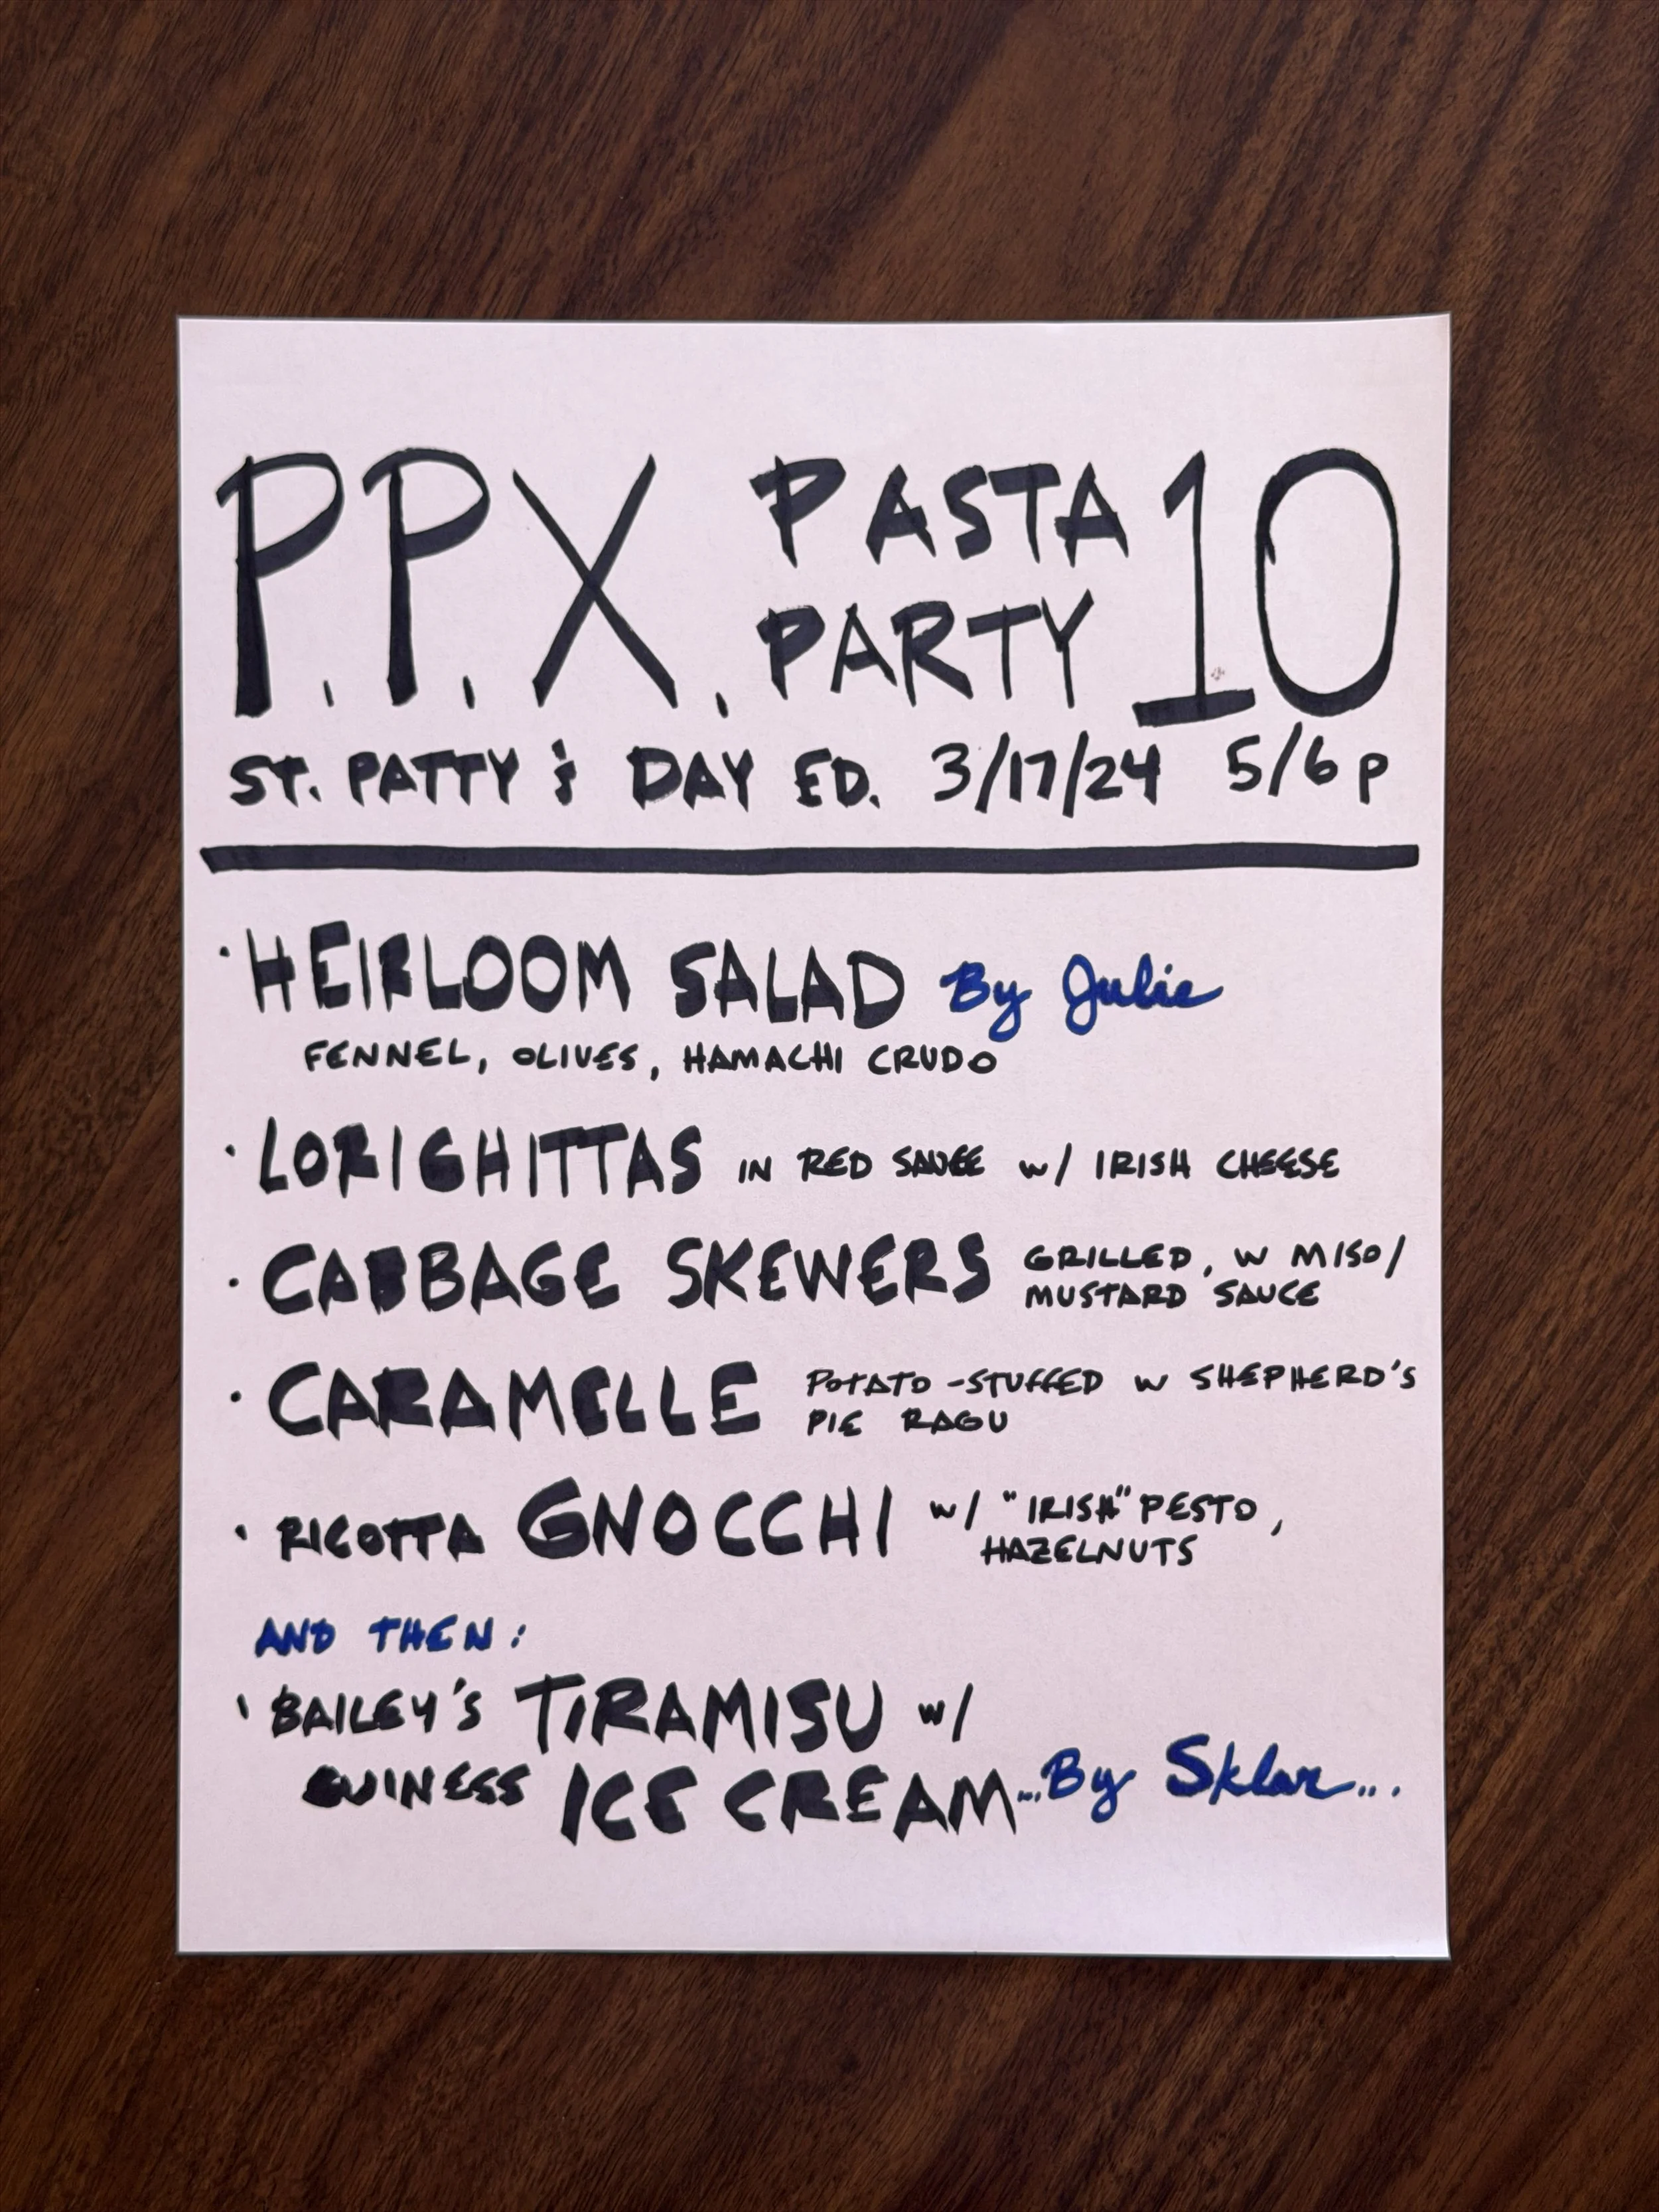 P.P.X. PASTA PARTY 10
ST. PATTY'S DAY ED. 3/17/24 5/6p
· HEIRLOOM SALAD By Julie
FENNEL, OLIVES, HAMACHI CRUDO
· LORIGHITTAS IN RED SAUCE w/ IRISH CHEESE
· CABBAGE SKEWERS GRILLED, W MISO/
MUSTARD SAUCE
· CARAMELLE POTATO-STUFFED W SHEPHERD'S
PIE RAGU
· RICOTTA GNOCCHI w/ "IRISH" PESTO,
HAZELNUTS
AND THEN:
· BAILEY'S TIRAMISU w/
GUINESS ICE CREAM...By Sklar...